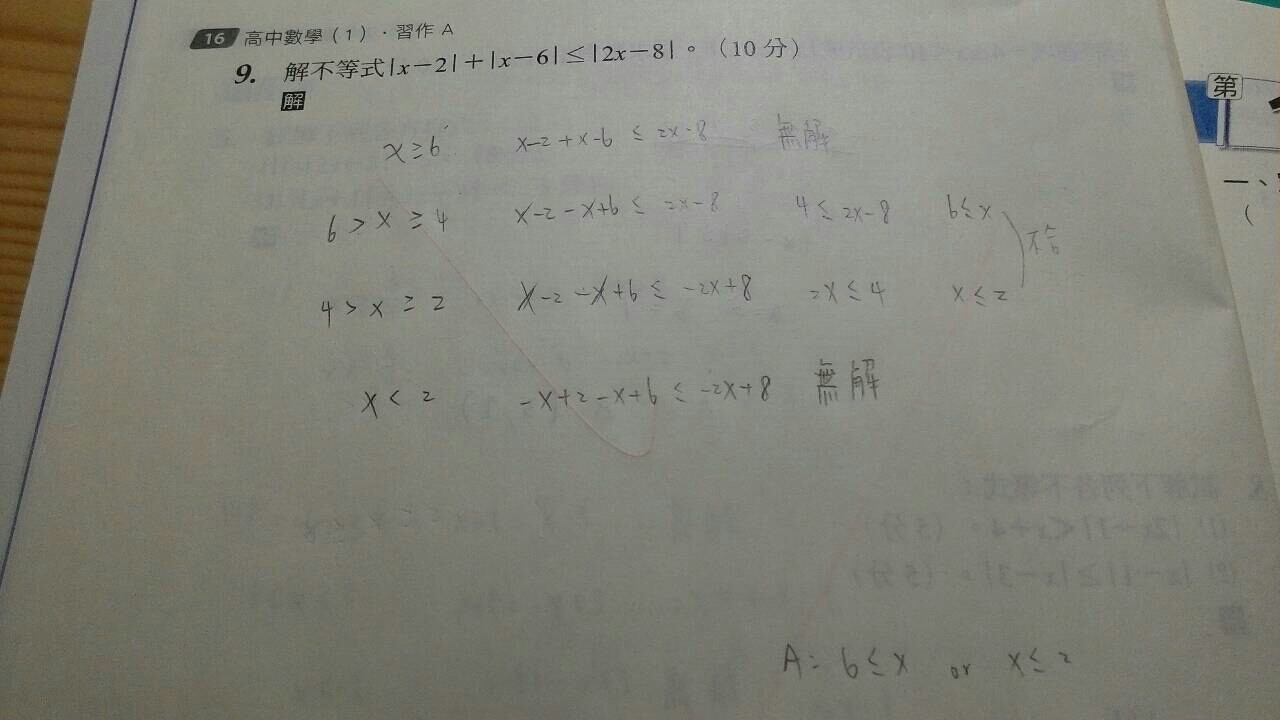 16 高中數學(1)．習作 A
9. 解不等式|x−2|+|x−6|≤|2x−8|。(10 分)
解
x≥6 x-2+x-6 ≤ 2x-8 無解
6>x≥4 x-2-x+6 ≤ 2x-8 4≤2x-8 6≤x
不合
4>x≥2 x-2-x+6 ≤ -2x+8 2x≤4 x≤2
x<2 -x+2-x+6 ≤ -2x+8 無解
A: 6≤x or x≤2
第
一、
(